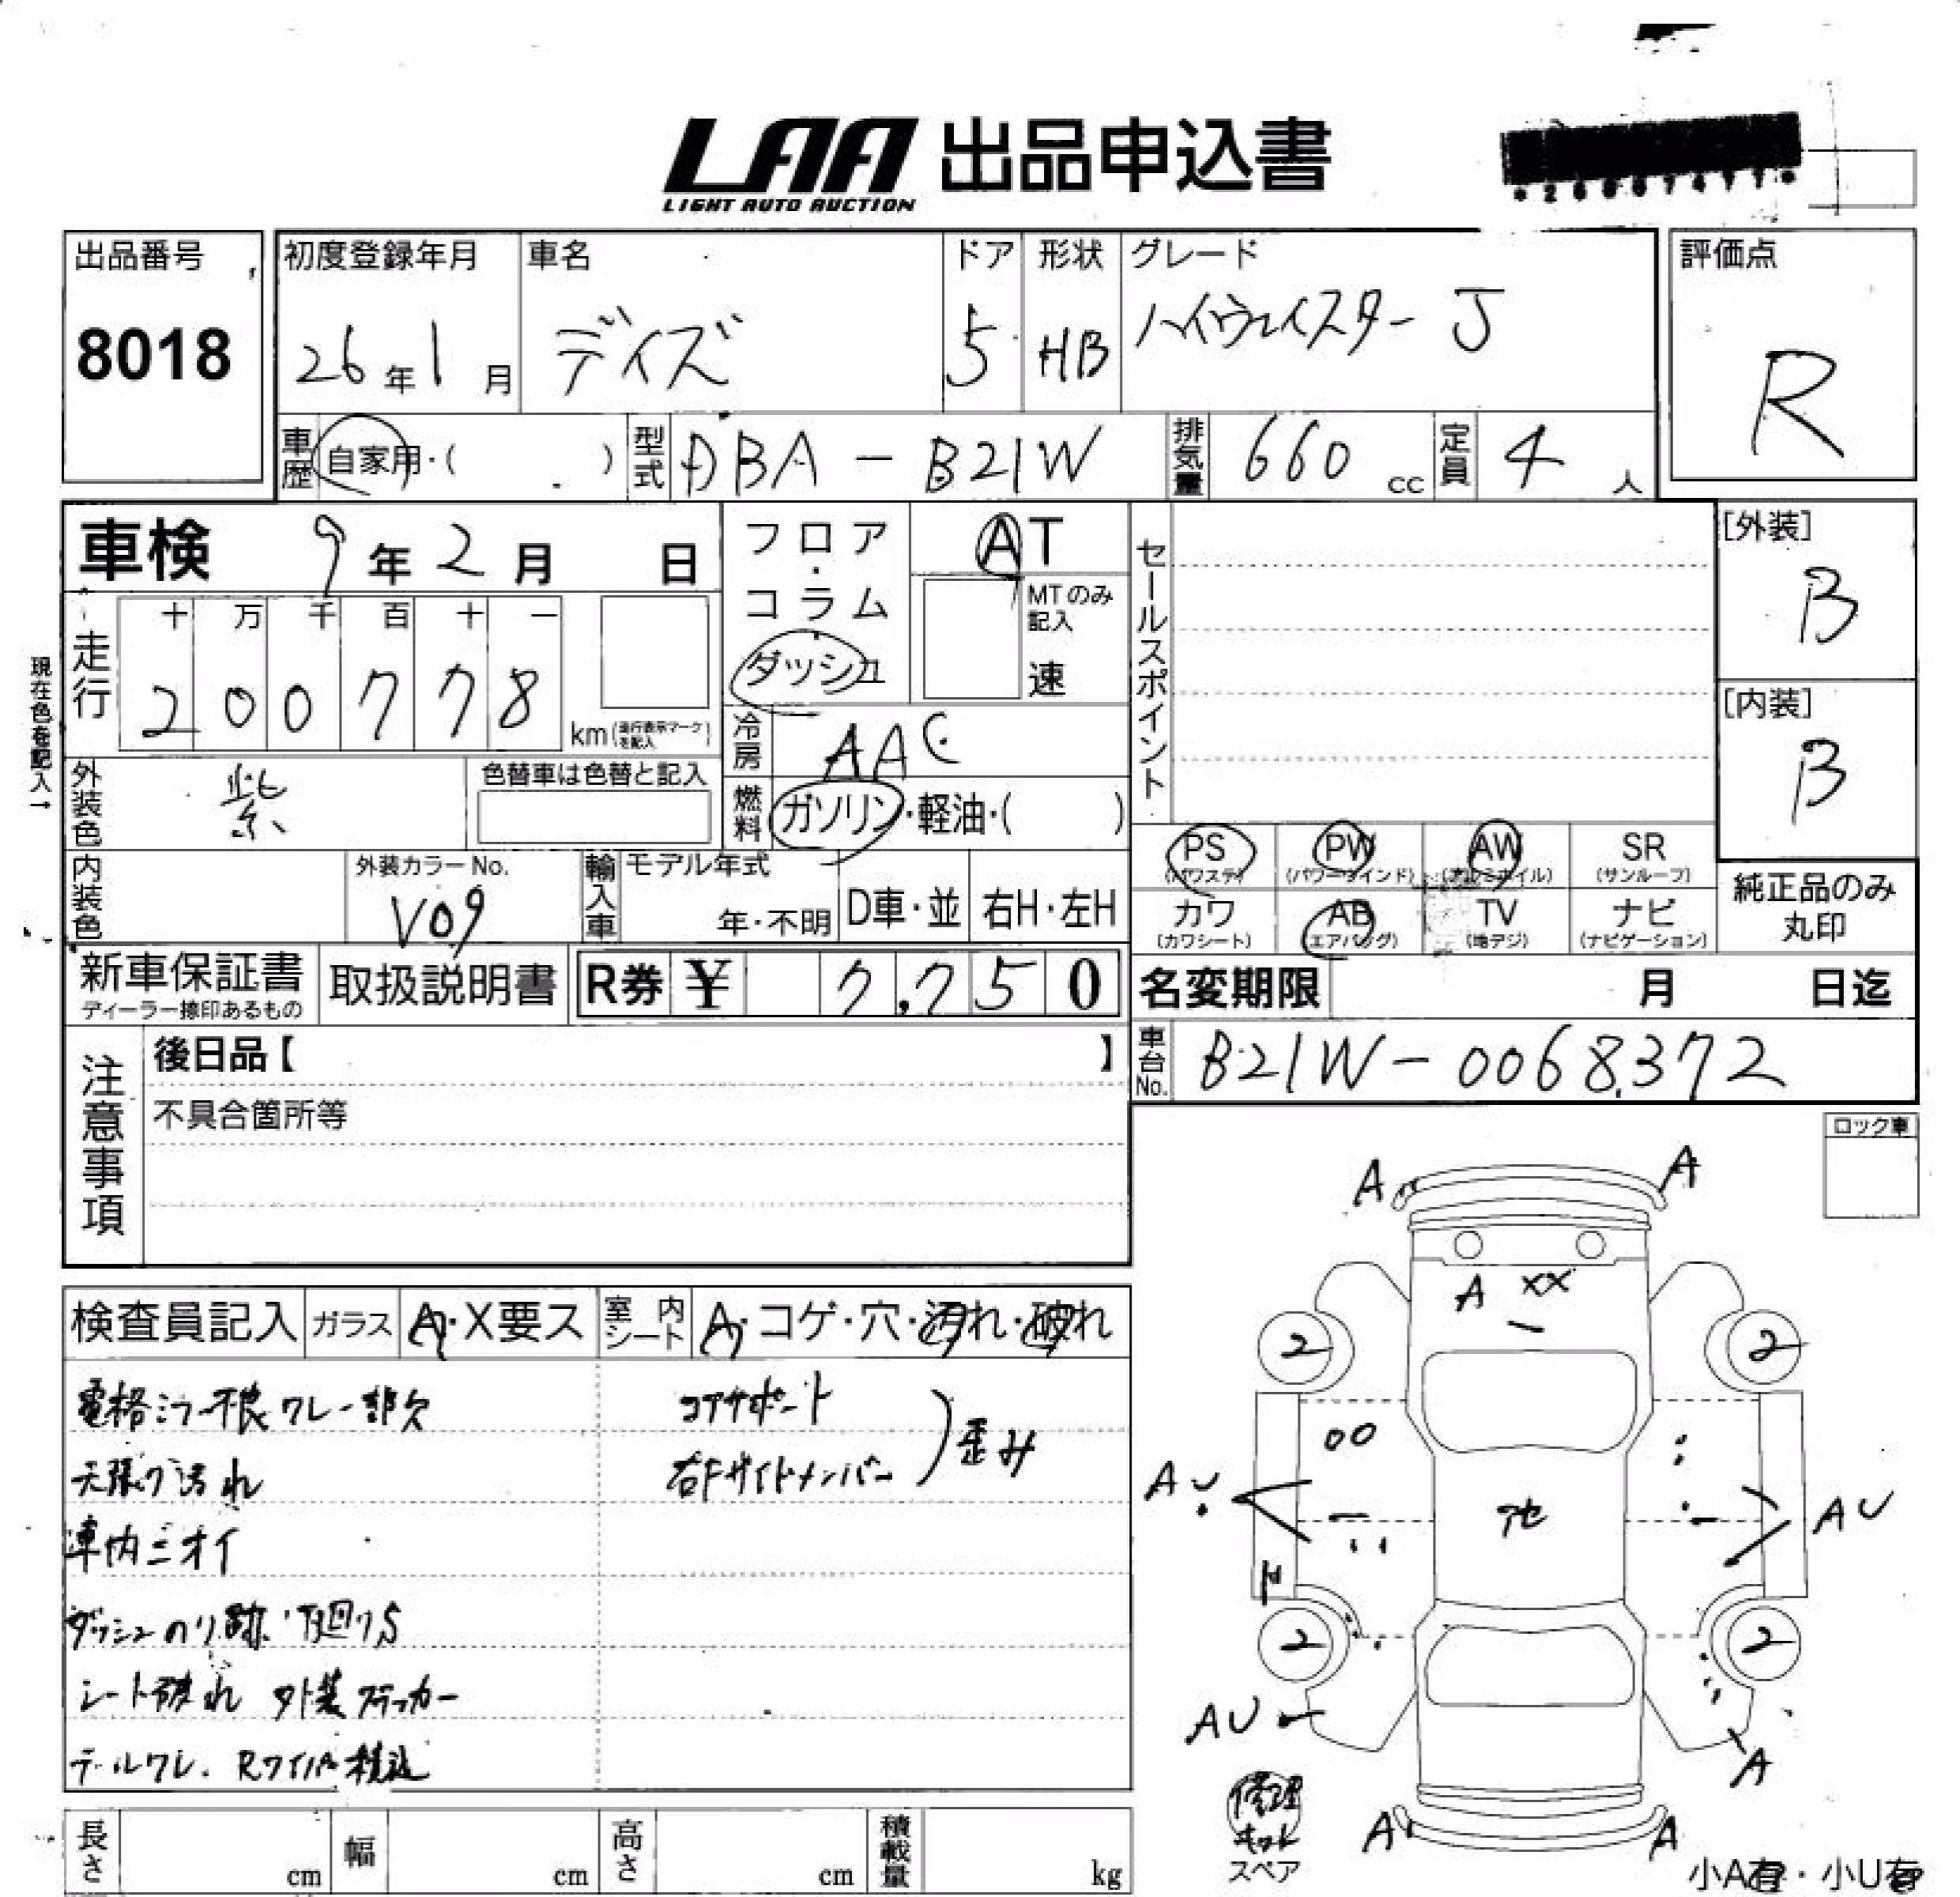 LAA 出品申込書
LIGHT AUTO AUCTION
出品番号
8018
初度登録年月
26年1月
車名
デイズ
ドア
5
形状
HB
グレード
ハイウェイスター J
評価点
R
車歴 自家用・( )
型式 DBA-B21W
排気量 660 cc
定員 4 人
車検 9年2月 日
フロア・コラム
ダッシュ
AT
MTのみ記入
速
セールスポイント
[外装]
B
[内装]
B
現在色を記入→
走行
十 万 千 百 十 一
2 0 0 7 7 8
km(走行表示マークを記入)
冷房 AAC
外装色 紫
色替車は色替と記入
燃料 ガソリン・軽油・( )
PS PW AW SR
(パワステ) (パワーウインド) (アルミホイル) (サンルーフ)
内装色
外装カラーNo.
V09
輸入車
モデル年式
年・不明
D車・並
右H・左H
カワ AB TV ナビ
(カワシート) (エアバッグ) (地デジ) (ナビゲーション)
純正品のみ
丸印
新車保証書
ディーラー捺印あるもの
取扱説明書
R券 ¥ 7,750
名変期限 月 日迄
車台No. B21W-0068372
注意事項
後日品【 】
不具合箇所等
ロック車
検査員記入
ガラス A・X要ス
室内シート A・コゲ・穴・汚れ・破れ
電格ミラー不良 ワレ 一部欠
コアサポート
天張り汚れ
右Fサイドメンバー
)歪み
車内ニオイ
ダッシュのり跡 下回りS
シート破れ 外装ステッカー
テールワレ. Rワイパー
A A
A XX
2 2
AU AU
2 2
AU A
A A
修理
キット
スペア
小A有・小U有
長さ cm
幅 cm
高さ cm
積載量 kg